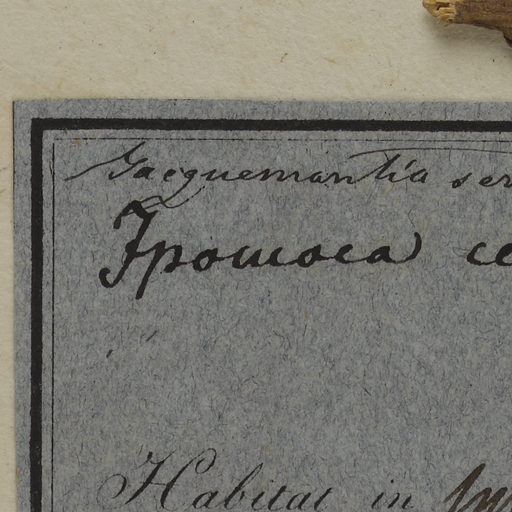 Jacquemantia ser
Ipomoea ce
Habitat in